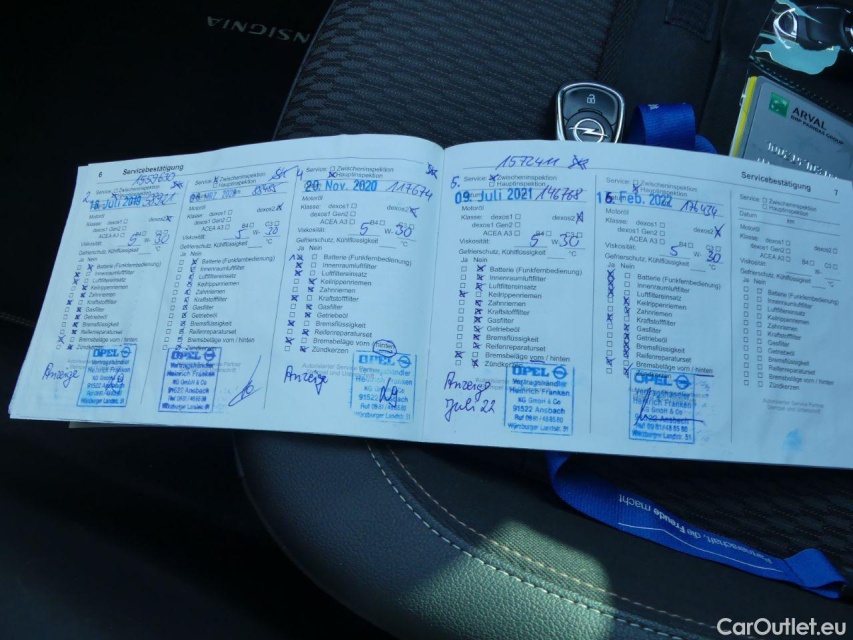 INSIGNIA
ARVAL
BNP PARIBAS GROUP
6 Servicebestätigung
Servicebestätigung 7
16. Juli 2019
Motoröl
Klasse: dexos1 ☐ dexos2 ☒
dexos1 Gen2 ☐
ACEA A3 ☐ B4 ☐ C3 ☐
Viskosität: 5 W- 30
Gefrierschutz, Kühlflüssigkeit °C
Ja Nein
Batterie (Funkfernbedienung)
Innenraumluftfilter
Luftfiltereinsatz
Keilrippenriemen
Zahnriemen
Kraftstofffilter
Gasfilter
Getriebeöl
Bremsflüssigkeit
Reifenreparaturset
Bremsbeläge vorn / hinten
Zündkerzen
Anzeige
OPEL
Vertragshändler
Heinrich Franken
KG GmbH & Co
91522 Ansbach
Service: Zwischeninspektion
Hauptinspektion
Motoröl
Klasse: dexos1 ☐ dexos2 ☒
dexos1 Gen2 ☐
ACEA A3 ☐ B4 ☐ C3 ☐
Viskosität: 5 W- 30
Gefrierschutz, Kühlflüssigkeit °C
Ja Nein
Batterie (Funkfernbedienung)
Innenraumluftfilter
Luftfiltereinsatz
Keilrippenriemen
Zahnriemen
Kraftstofffilter
Gasfilter
Getriebeöl
Bremsflüssigkeit
Reifenreparaturset
Bremsbeläge vorn / hinten
Zündkerzen
OPEL
Vertragshändler
Heinrich Franken
KG GmbH & Co
91522 Ansbach
Würzburger Landstr.
4
Service: Zwischeninspektion
Hauptinspektion
20. Nov. 2020 117674
Motoröl
Klasse: dexos1 ☐ dexos2 ☒
dexos1 Gen2 ☐
ACEA A3 ☐ B4 ☐ C3 ☐
Viskosität: 5 W- 30
Gefrierschutz, Kühlflüssigkeit °C
Ja Nein
Batterie (Funkfernbedienung)
Innenraumluftfilter
Luftfiltereinsatz
Keilrippenriemen
Zahnriemen
Kraftstofffilter
Gasfilter
Getriebeöl
Bremsflüssigkeit
Reifenreparaturset
Bremsbeläge vorn / hinten
Zündkerzen
Anzeige
OPEL
Vertragshändler
Heinrich Franken
KG GmbH & Co
91522 Ansbach
Würzburger Landstr.
1572411
5.
Service: Zwischeninspektion
Hauptinspektion
09. Juli 2021 146768
Motoröl
Klasse: dexos1 ☐ dexos2 ☒
dexos1 Gen2 ☐
ACEA A3 ☐ B4 ☐ C3 ☐
Viskosität: 5 W- 30
Gefrierschutz, Kühlflüssigkeit °C
Ja Nein
Batterie (Funkfernbedienung)
Innenraumluftfilter
Luftfiltereinsatz
Keilrippenriemen
Zahnriemen
Kraftstofffilter
Gasfilter
Getriebeöl
Bremsflüssigkeit
Reifenreparaturset
Bremsbeläge vorn / hinten
Zündkerzen
Anzeige
Juli 22
OPEL
Vertragshändler
Heinrich Franken
KG GmbH & Co
91522 Ansbach
Würzburger Landstr.
Service: Zwischeninspektion
Hauptinspektion
Feb. 2022 176434
Motoröl
Klasse: dexos1 ☐ dexos2 ☒
dexos1 Gen2 ☐
ACEA A3 ☐ B4 ☐ C3 ☐
Viskosität: 5 W- 30
Gefrierschutz, Kühlflüssigkeit °C
Ja Nein
Batterie (Funkfernbedienung)
Innenraumluftfilter
Luftfiltereinsatz
Keilrippenriemen
Zahnriemen
Kraftstofffilter
Gasfilter
Getriebeöl
Bremsflüssigkeit
Reifenreparaturset
Bremsbeläge vorn / hinten
Zündkerzen
OPEL
Vertragshändler
Heinrich Franken
KG GmbH & Co
91522 Ansbach
Würzburger Landstr.
Service: Zwischeninspektion
Hauptinspektion
Datum
km
Motoröl
Klasse: dexos1 ☐ dexos2 ☐
dexos1 Gen2 ☐
ACEA A3 ☐ B4 ☐ C3 ☐
Viskosität: W-
Gefrierschutz, Kühlflüssigkeit °C
Ja Nein
Batterie (Funkfernbedienung)
Innenraumluftfilter
Luftfiltereinsatz
Keilrippenriemen
Zahnriemen
Kraftstofffilter
Gasfilter
Getriebeöl
Bremsflüssigkeit
Reifenreparaturset
Bremsbeläge vorn / hinten
Zündkerzen
Autorisierter Service Partner
Stempel und Unterschrift
Partnerschaft, die Freude macht
CarOutlet.eu